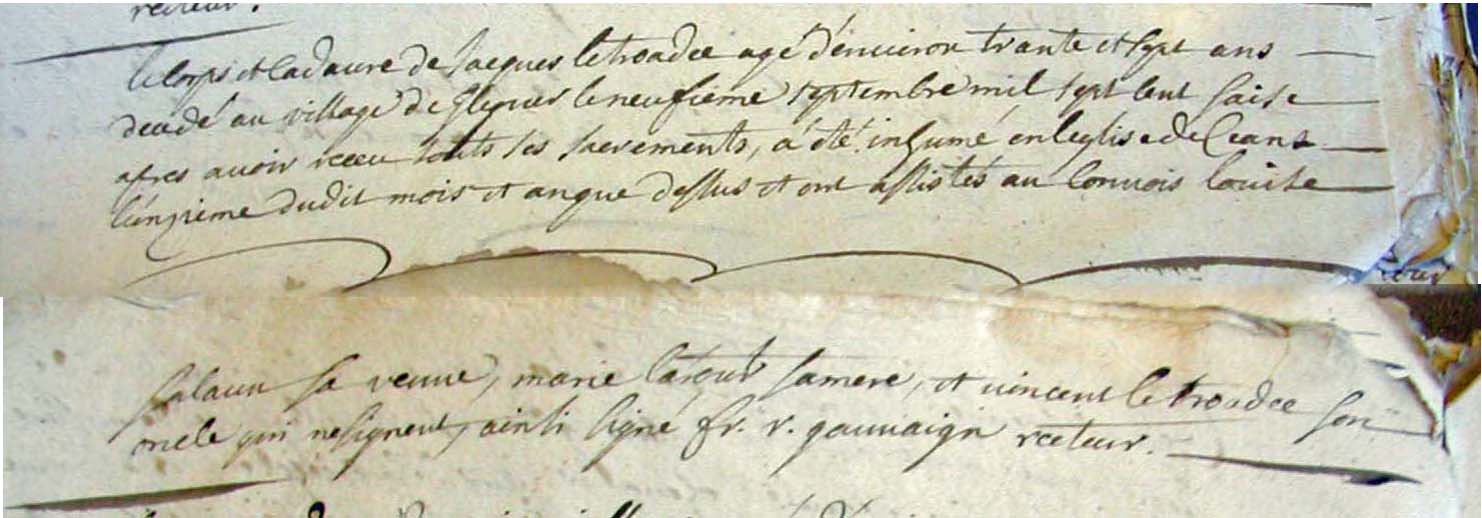 recteur.
le corps et cadavre de Jacques le troadec agé d'enuiron trante et sept ans
decedé au village de le neufieme septembre mil sept cent saise
apres auoir receu touts ses sacrements, a été inhumé en l'eglise de Ceans
l'onzieme dudit mois et an que dessus et ont assistés au conuois Louise
Salaun sa veuue, marie sa mere, et uincent le troadec son
oncle qui ne signent, ainsi signé fr. r. gauuaign recteur.